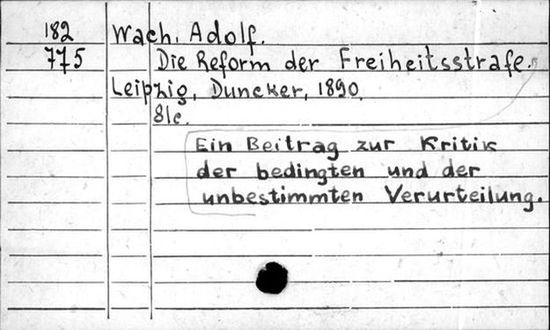 182 Wach, Adolf.
775 Die Reform der Freiheitsstrafe.
Leipzig, Duncker, 1890.
81c.
Ein Beitrag zur Kritik
der bedingten und der
unbestimmten Verurteilung.